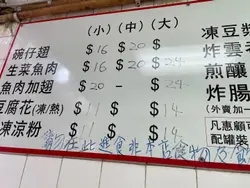 (小) (中) (大) 凍豆漿
碗仔翅 $16 $20 $ 炸雲
生菜魚肉 $16 $20 $24 煎釀
魚肉加翅 $20 - $24 炸腸
豆腐花(凍/熱) $11 $ $14 (外賣加一
凍涼粉 $11 $ $14 凡惠顧
配罐裝
在此進食非本店食物及飲